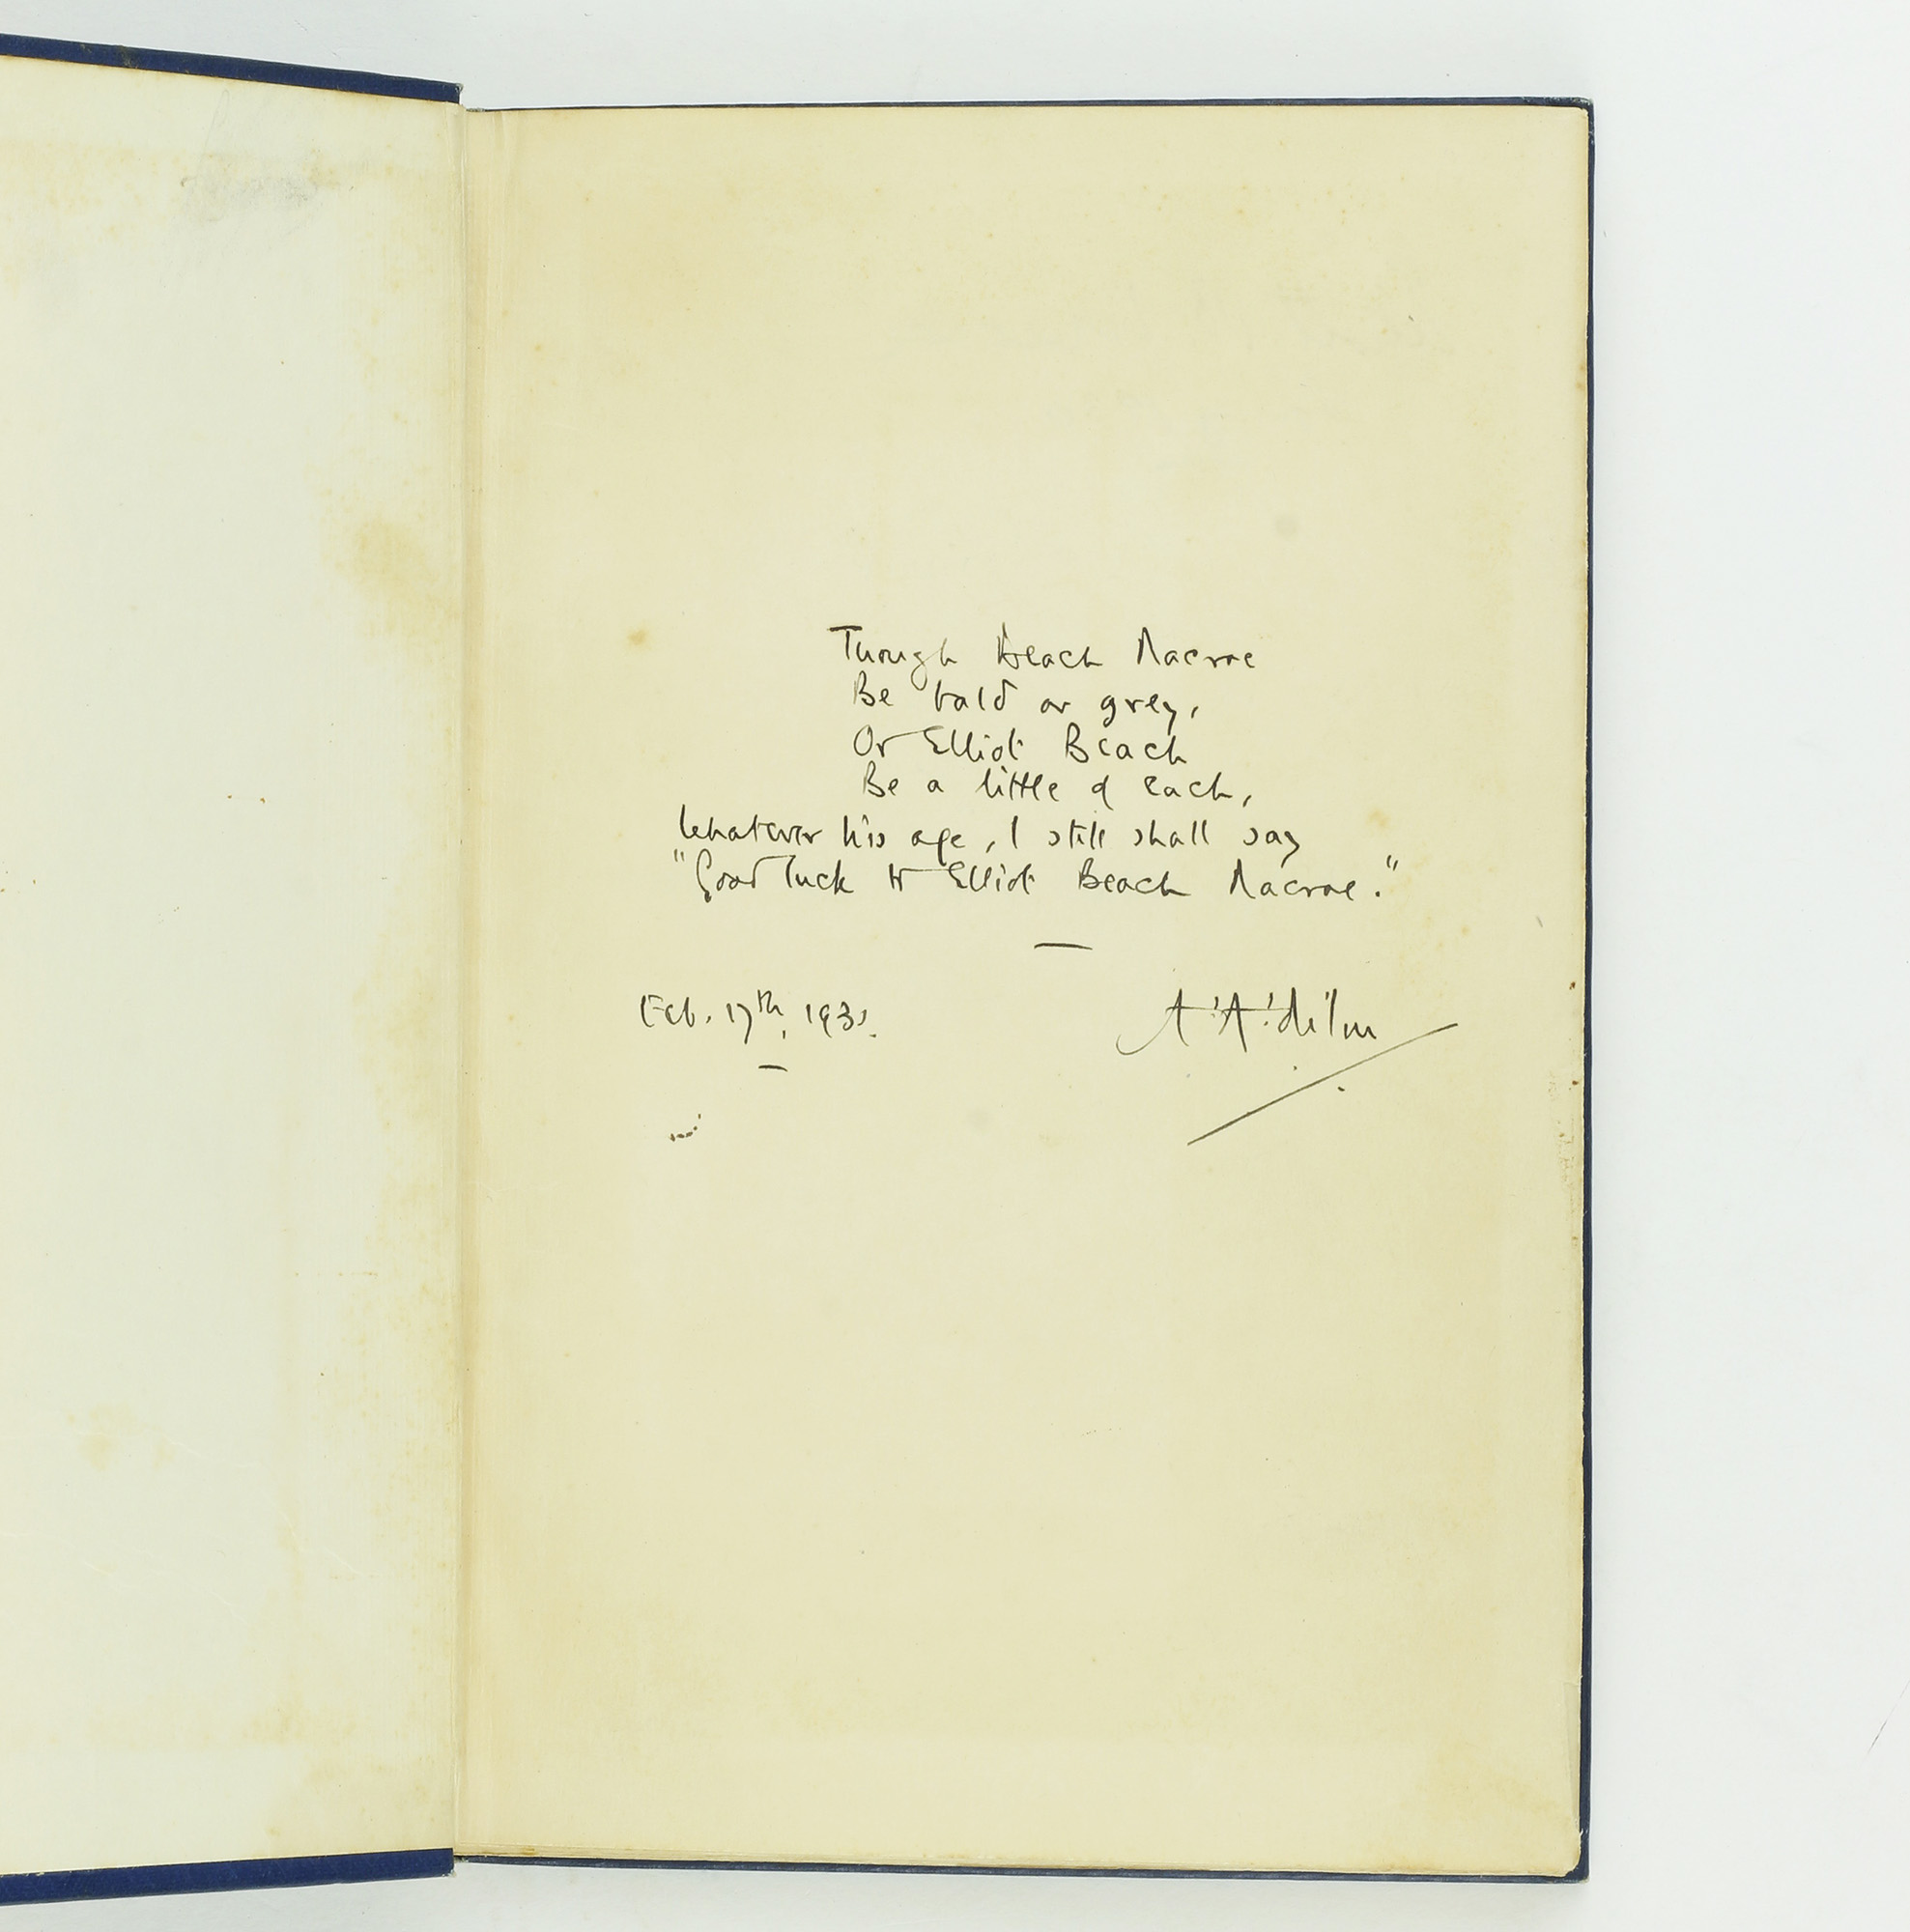 Though Beach Macrae
Be bald or grey,
Or Elliot Beach
Be a little of each,
Whatever his age, I still shall say
"Good luck to Elliot Beach Macrae."
—
Feb. 17th, 1931.
A. A. Milne